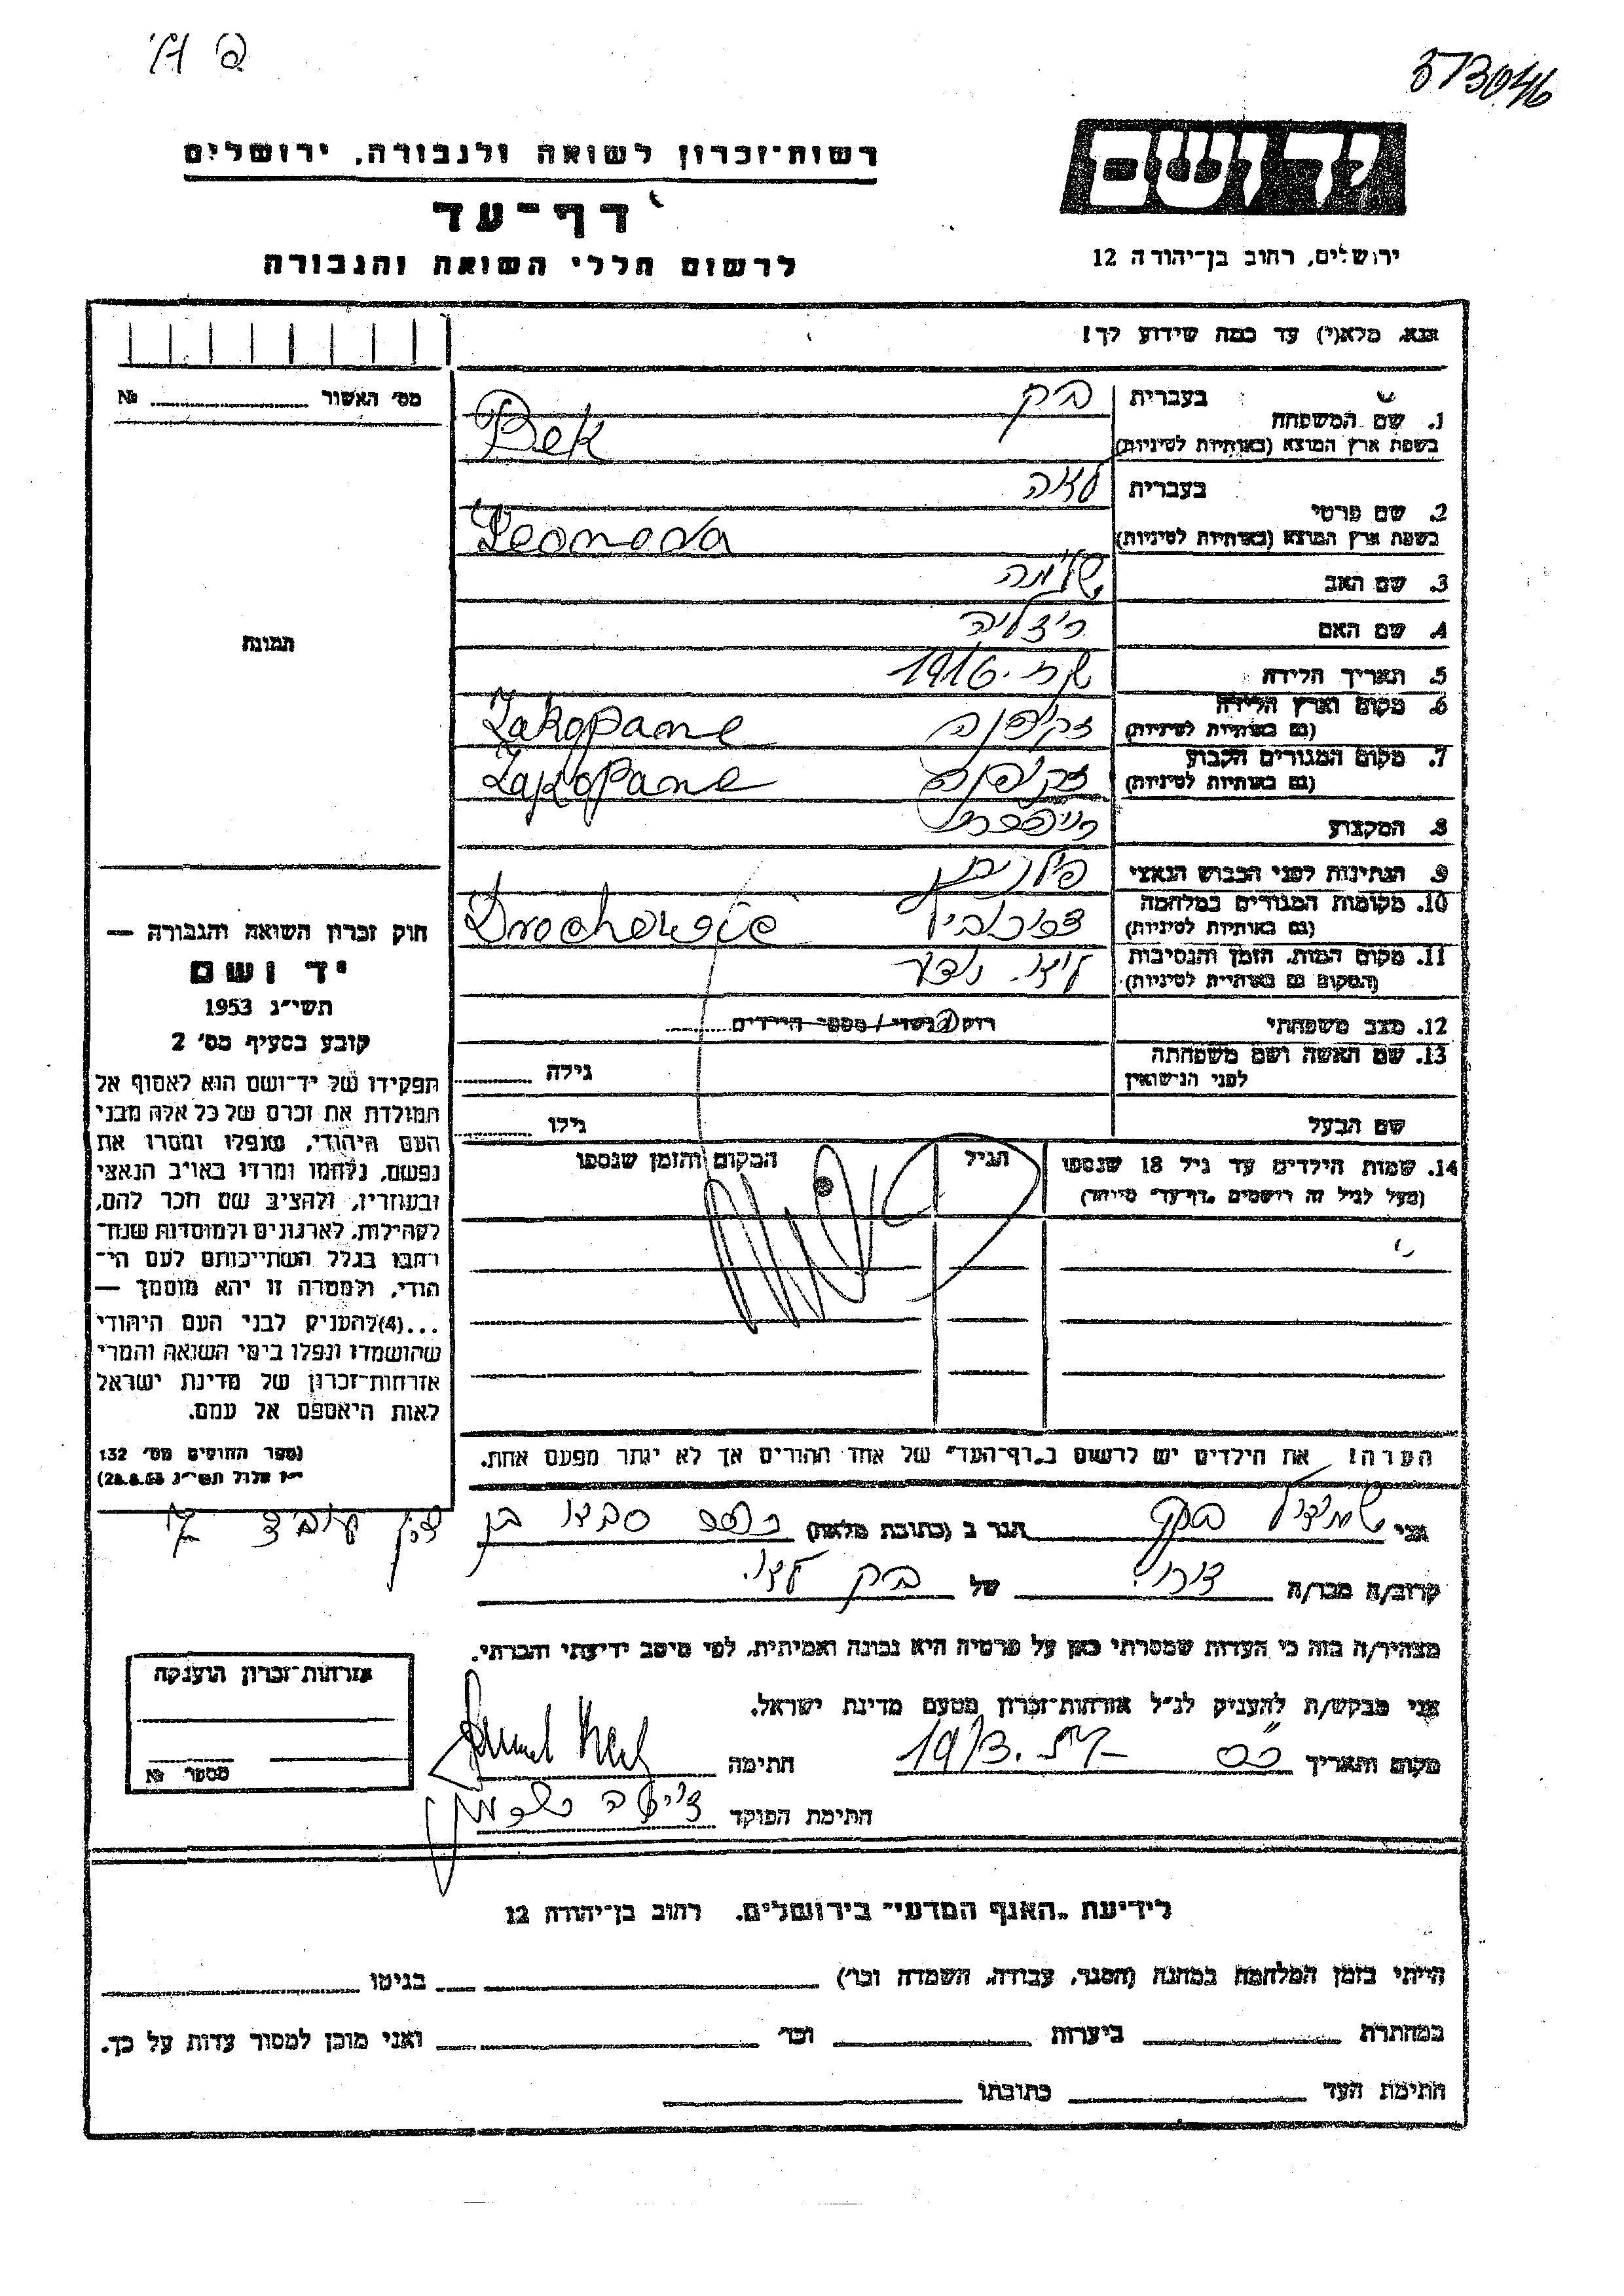 573046
יד ושם
רשות־זכרון לשואה ולגבורה, ירושלים
דף־עד
לרשום חללי השואה והגבורה
ירושלים, רחוב בן־יהודה 12
אנא, מלא(י) עד כמה שידוע לך!
מס׳ האשור № ........
1. שם המשפחה
בעברית
בק
בשפת ארץ המוצא (באותיות לטיניות)
Bek
2. שם פרטי
בעברית
בשפת ארץ המוצא (באותיות לטיניות)
Leonora
3. שם האב
שלמה
4. שם האם
5. תאריך הלידה
1916
6. מקום וארץ הלידה
(גם באותיות לטיניות)
Zakopane
7. מקום המגורים הקבוע
(גם באותיות לטיניות)
Zakopane
8. המקצוע
9. הנתינות לפני הכבוש הנאצי
10. מקומות המגורים במלחמה
(גם באותיות לטיניות)
11. מקום המות, הזמן והנסיבות
(המקום גם באותיות לטיניות)
12. מצב משפחתי
רווק/נשוי/מספר הילדים........
13. שם האשה ושם משפחתה
לפני הנישואין
גילה ........
שם הבעל
גילו ........
14. שמות הילדים עד גיל 18 שנספו
(מעל לגיל זה רושמים „דף־עד״ מיוחד)
הגיל
המקום והזמן שנספו
הערה! את הילדים יש לרשום ב„דף־העד״ של אחד ההורים אך לא יותר מפעם אחת.
תמונה
חוק זכרון השואה והגבורה —
יד ושם
תשי״ג 1953
קובע בסעיף מס׳ 2
תפקידו של יד־ושם הוא לאסוף אל
המולדת את זכרם של כל אלה מבני
העם היהודי, שנפלו ומסרו את
נפשם, נלחמו ומרדו באויב הנאצי
ובעוזריו, ולהציב שם וזכר להם,
לקהילות, לארגונים ולמוסדות שנח־
רבו בגלל השתייכותם לעם הי־
הודי, ולמטרה זו יהא מוסמך —
...(4) להעניק לבני העם היהודי
שהושמדו ונפלו בימי השואה והמרי
אזרחות־זכרון של מדינת ישראל
לאות היאספם אל עמם.
(ספר החוקים מס׳ 132
י״ז אלול תשי״ג 28.8.53)
אני בק הגר ב (כתובת מלאה)
קרוב/ה מכר/ה של בק
מצהיר/ה בזה כי העדות שמסרתי כאן על פרטיה היא נכונה ואמיתית, לפי מיטב ידיעתי והכרתי.
אני מבקש/ת להעניק לנ״ל אזרחות־זכרון מטעם מדינת ישראל.
מקום ותאריך
חתימה
חתימת הפוקד
אזרחות־זכרון הוענקה
מספר №
לידיעת „האגף המדעי״ בירושלים, רחוב בן־יהודה 12
הייתי בזמן המלחמה במחנה (הסגר, עבודה, השמדה וכו׳) בגיטו
במחתרת ביערות וכו׳ ואני מוכן למסור עדות על כך.
חתימת העד כתובתו